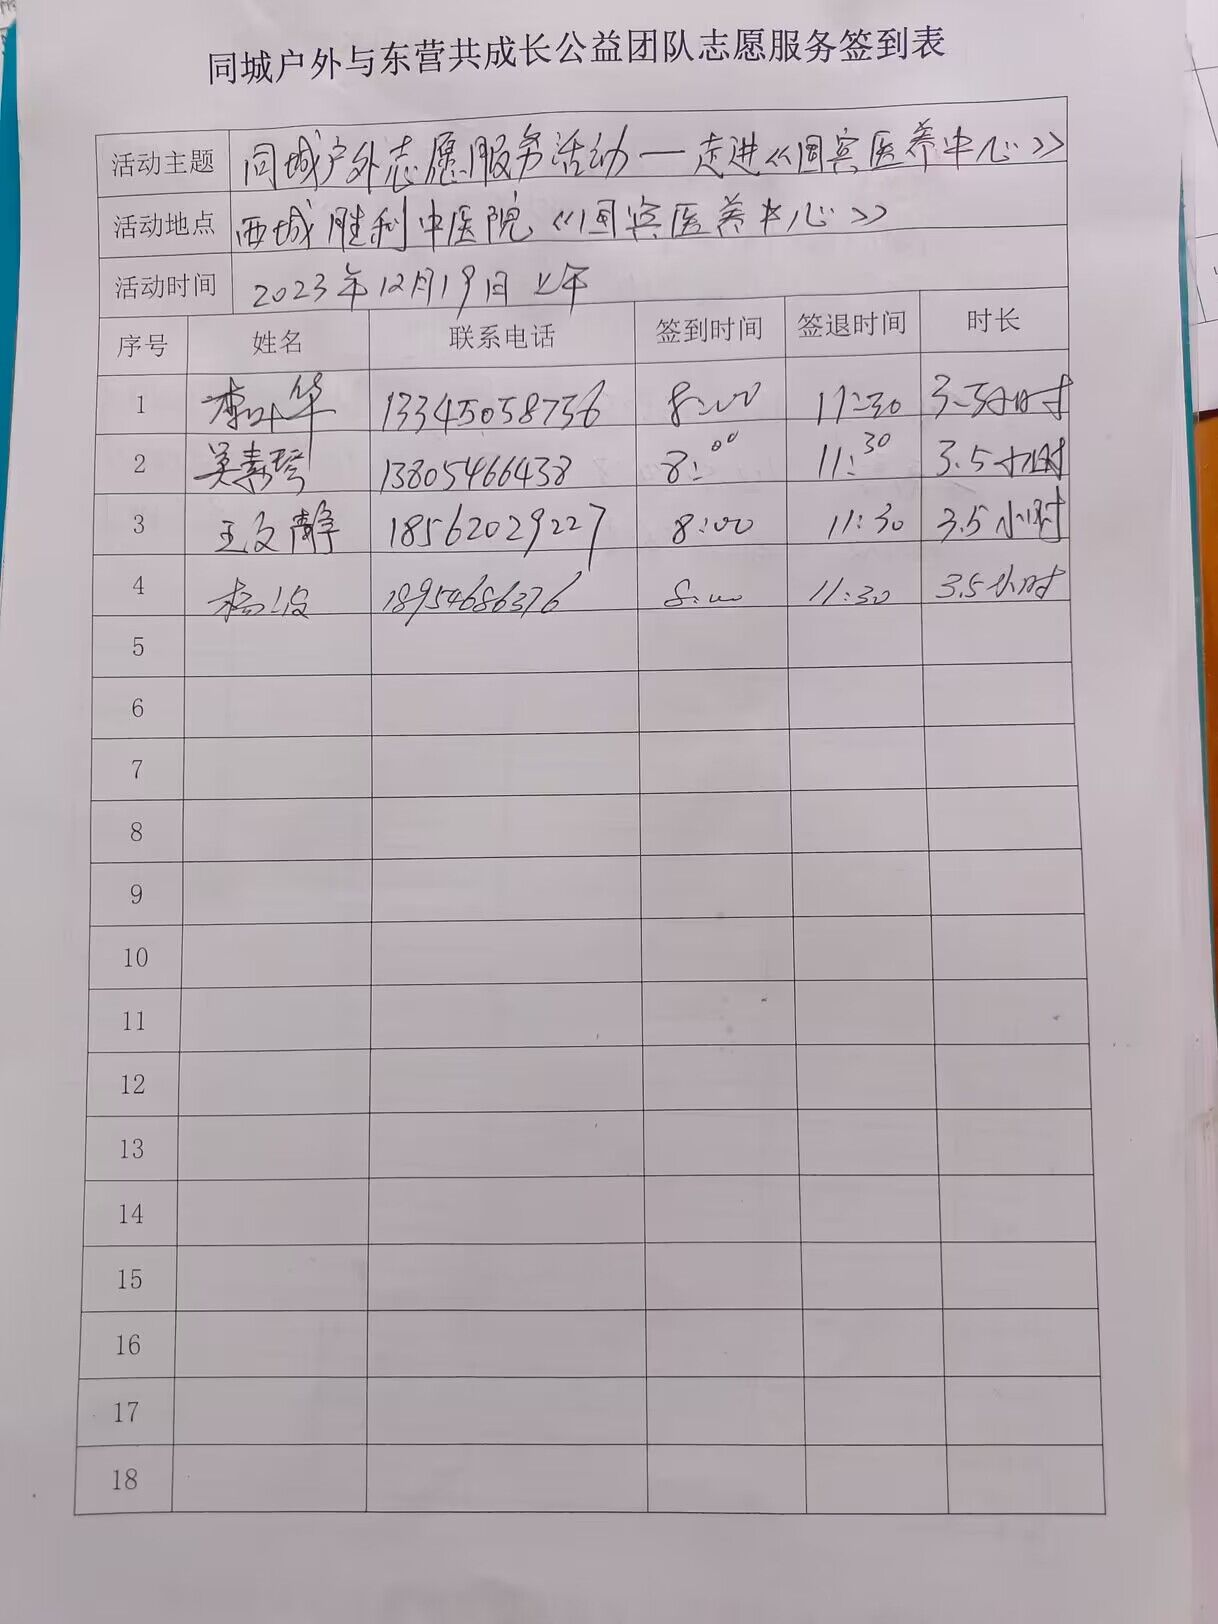 同城户外与东营共成长公益团队志愿服务签到表
活动主题 同城户外志愿服务活动一走进《国宾医养中心》
活动地点 西城胜利中医院《国宾医养中心》
活动时间 2023年12月19日上午
序号 姓名 联系电话 签到时间 签退时间 时长
1 李叶华 13345058736 8:00 11:30 3.5小时
2 吴素琴 13805466438 8:00 11:30 3.5小时
3 王文静 18562029227 8:00 11:30 3.5小时
4 杨波 18954686376 8:00 11:30 3.5小时
5
6
7
8
9
10
11
12
13
14
15
16
17
18